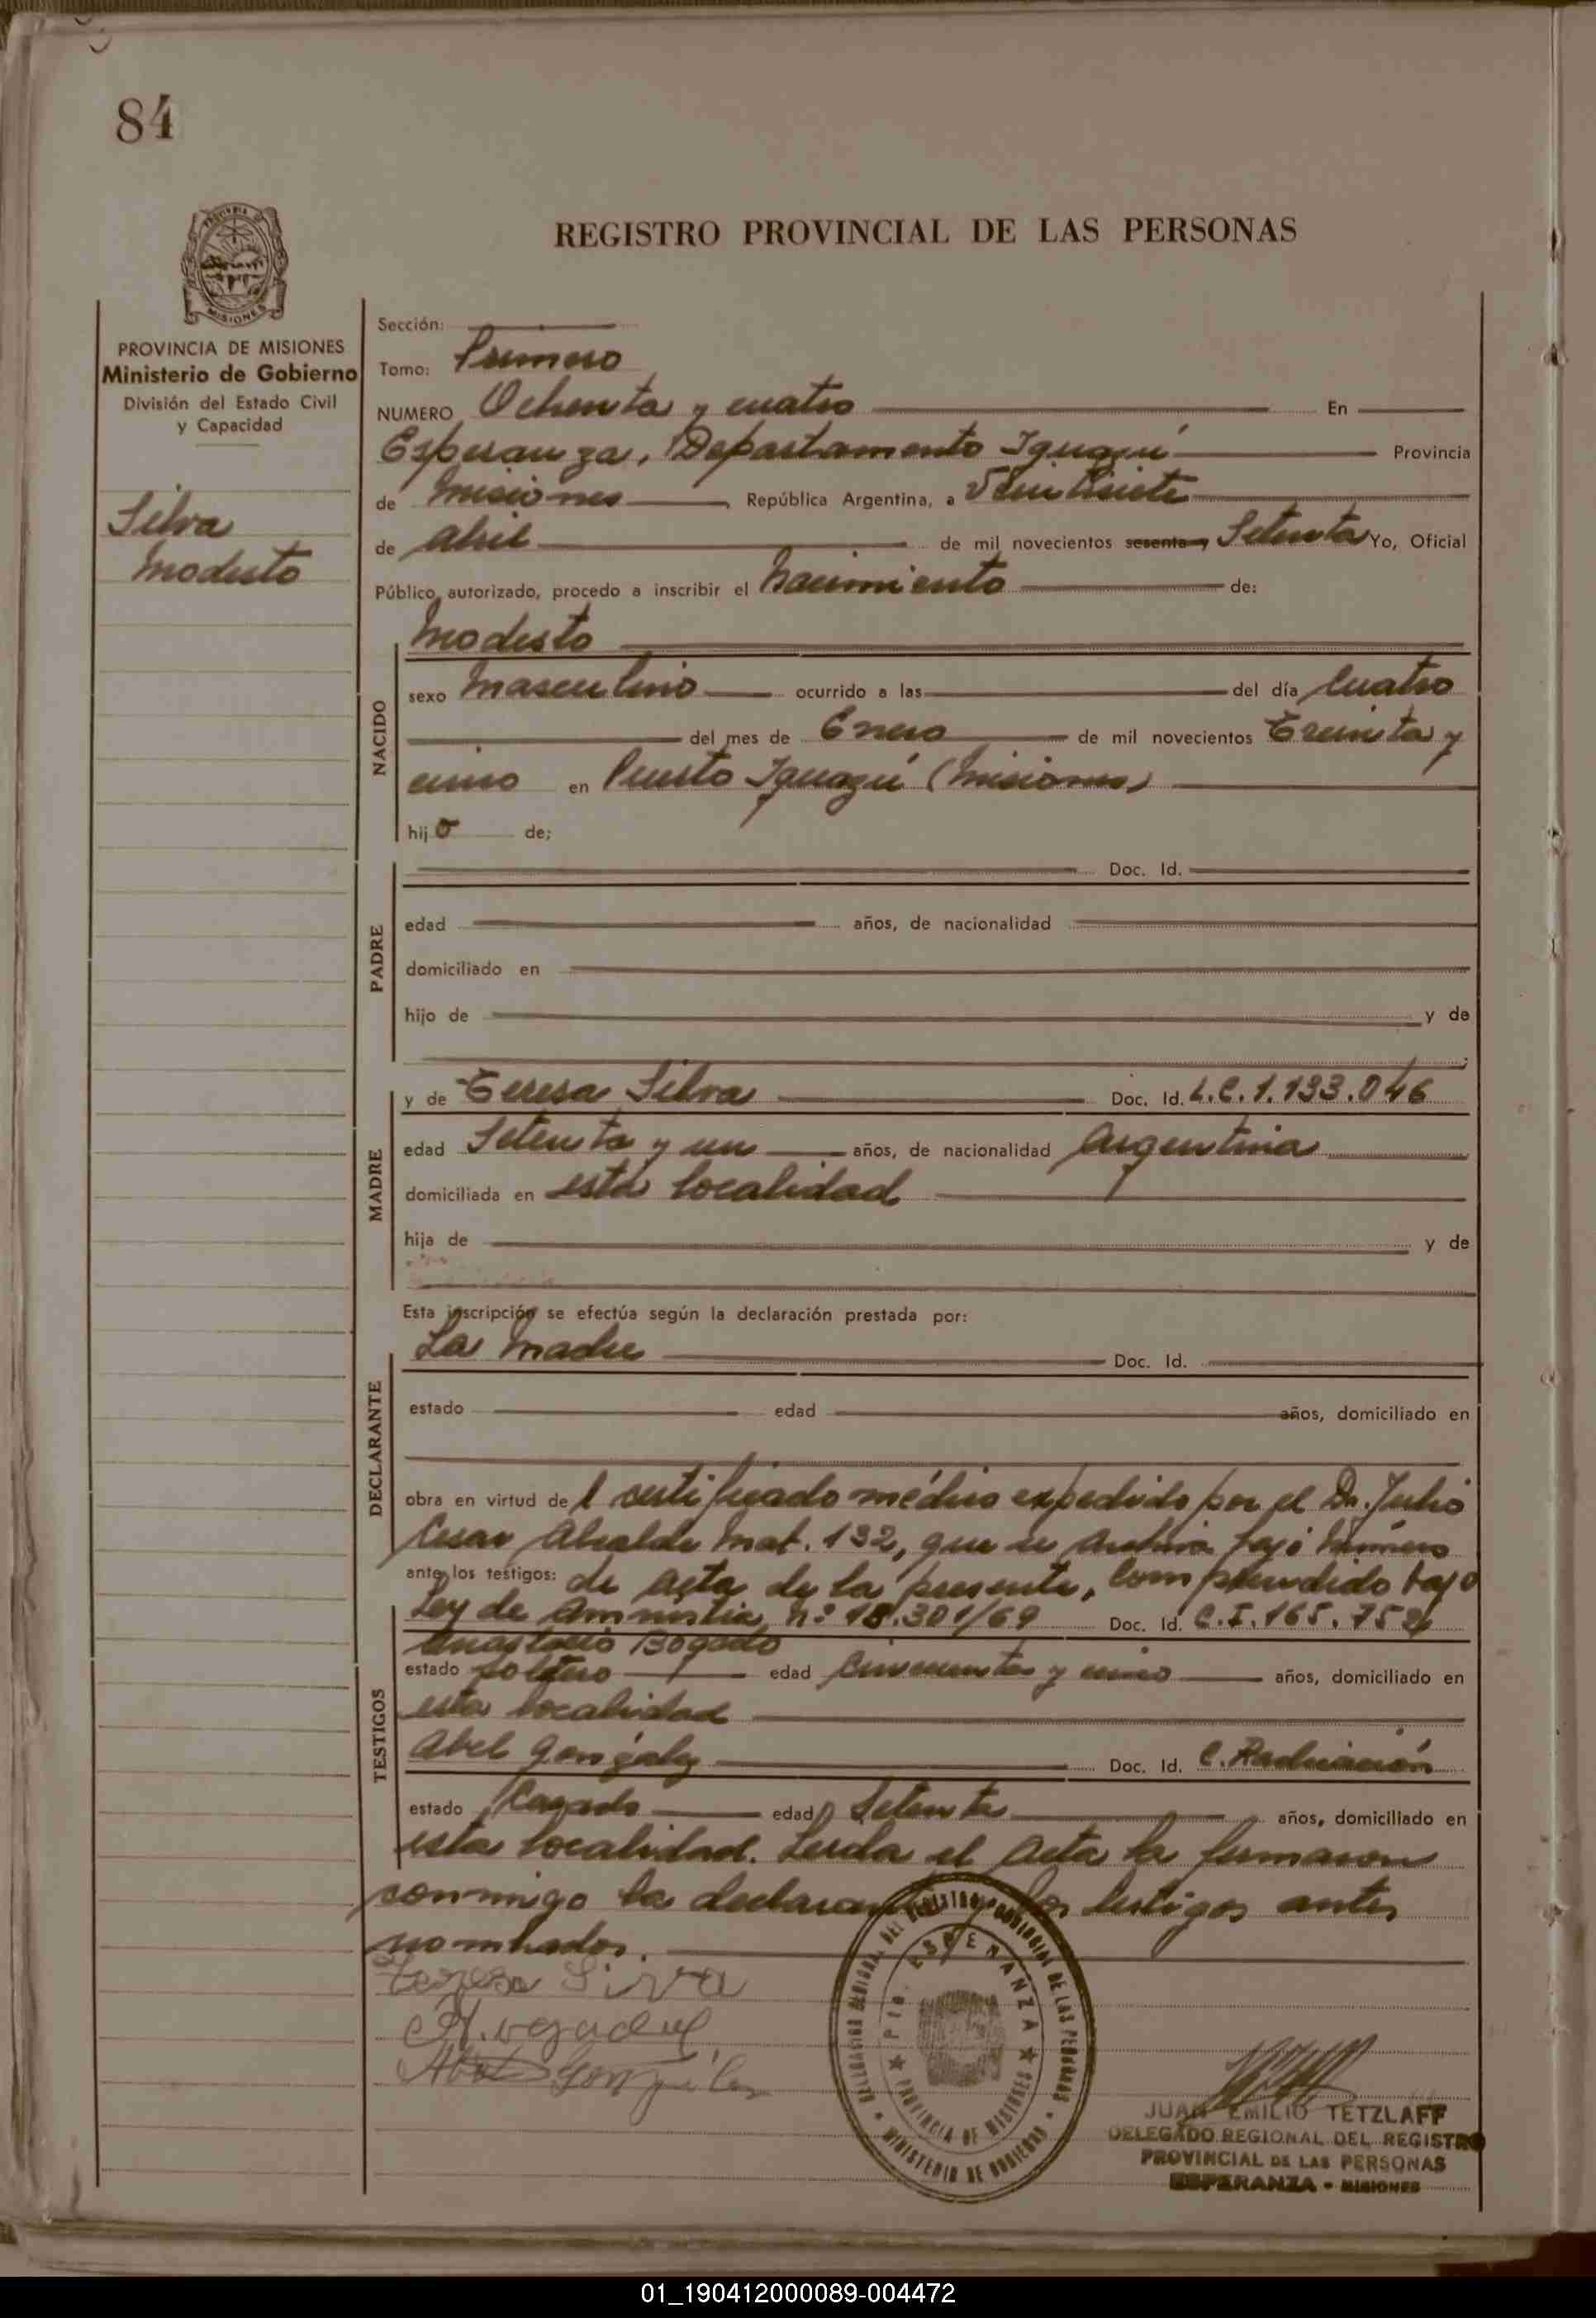 84
PROVINCIA DE
MISIONES
REGISTRO PROVINCIAL DE LAS PERSONAS
PROVINCIA DE MISIONES
Ministerio de Gobierno
División del Estado Civil
y Capacidad
Silva
Modesto
Sección:
Tomo: Primero
NUMERO Ochenta y cuatro En
Esperanza, Departamento Iguazú Provincia
de Misiones, República Argentina, a Veintisiete
de abril de mil novecientos sesenta y Setenta Yo, Oficial
Público autorizado, procedo a inscribir el Nacimiento de:
NACIDO
Modesto
sexo Masculino ocurrido a las del día Cuatro
del mes de Enero de mil novecientos Treinta y
cinco en Puerto Iguazú (Misiones)
hijo de;
PADRE
Doc. Id.
edad años, de nacionalidad
domiciliado en
hijo de y de
MADRE
y de Teresa Silva Doc. Id. L.C. 1.133.046
edad Setenta y un años, de nacionalidad Argentina
domiciliada en esta localidad
hija de y de
Esta inscripción se efectúa según la declaración prestada por:
DECLARANTE
La Madre Doc. Id.
estado edad años, domiciliado en
obra en virtud del certificado médico expedido por el Dr. Julio
Cesar Alcalde Mat. 132, que se Archiva bajo Número
ante los testigos: de acta de la presente, Comprendido bajo
Ley de Amnistia Nº 18.301/69 Doc. Id. C.I. 165.752
TESTIGOS
Anastacio Bogado
estado soltero edad Cincuenta y cinco años, domiciliado en
esta localidad
Abel González Doc. Id. C. Radicación
estado Casado edad Setenta años, domiciliado en
esta localidad. Leída el Acta la firmaron
conmigo la declarante y los testigos antes
nombrados.
Teresa Silva
Abel González
DELEGACION REGIONAL DEL REGISTRO PROVINCIAL DE LAS PERSONAS
MINISTERIO DE GOBIERNO
Pto. ESPERANZA
PROVINCIA DE MISIONES
JUAN EMILIO TETZLAFF
DELEGADO REGIONAL DEL REGISTRO
PROVINCIAL DE LAS PERSONAS
ESPERANZA - MISIONES
01_190412000089-004472